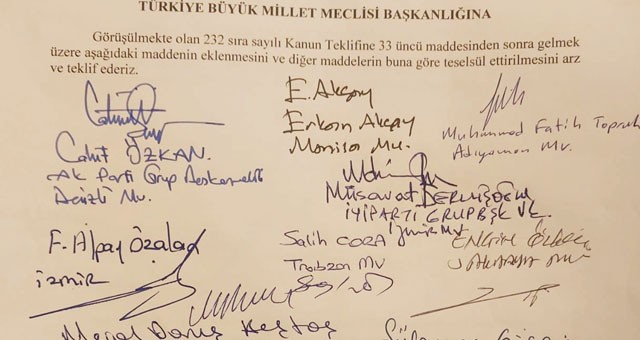 TÜRKİYE BÜYÜK MİLLET MECLİSİ BAŞKANLIĞINA
Görüşülmekte olan 232 sıra sayılı Kanun Teklifine 33 üncü maddesinden sonra gelmek
üzere aşağıdaki maddenin eklenmesini ve diğer maddelerin buna göre teselsül ettirilmesini arz
ve teklif ederiz.
Cahit ÖZKAN.
AK Parti Grup Başkanvekili
Denizli Mv.
E. Akçay
Erkan Akçay
Manisa Mv.
Muhammed Fatih Toprak
Adıyaman Mv.
Müsavat DERVİŞOĞLU
İYİ PARTİ GRUP BŞK VK.
İzmir MV
F. Alpay Özalan
İzmir
Salih CORA
Trabzon MV
Meral Danış Beştaş